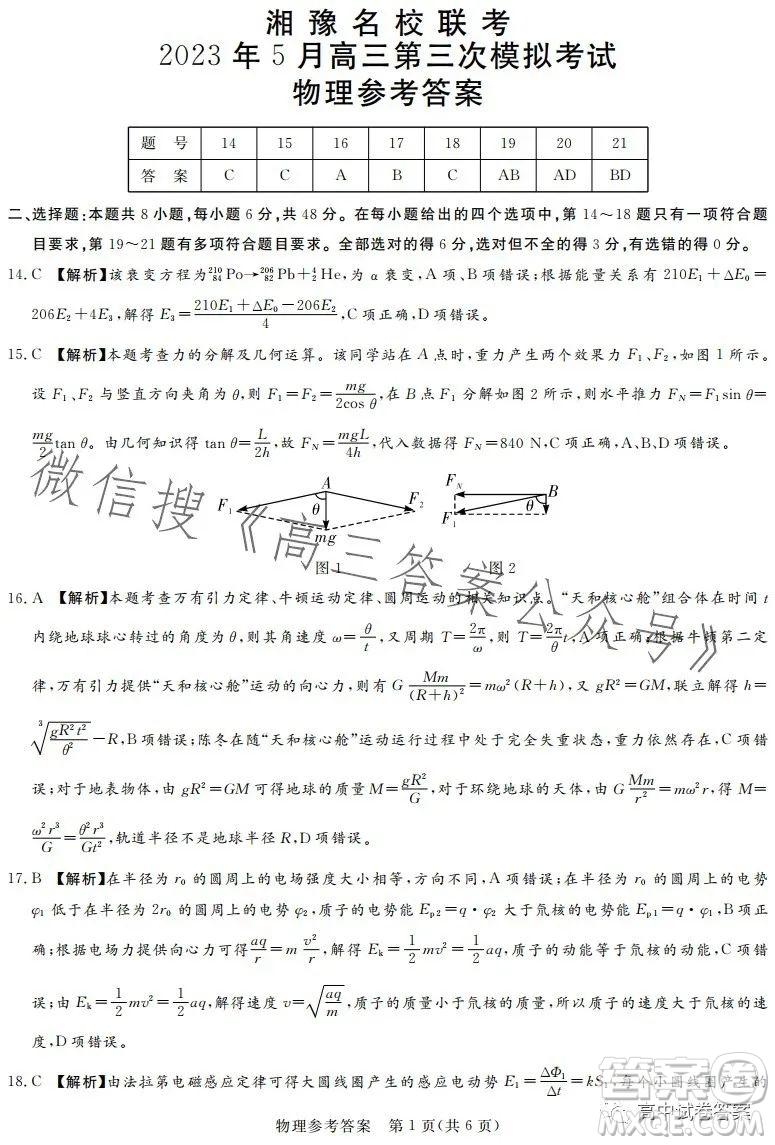 湘豫名校联考
2023年5月高三第三次模拟考试
物理参考答案
题 号 14 15 16 17 18 19 20 21
答 案 C C A B C AB AD BD
二、选择题:本题共8小题,每小题6分,共48分。在每小题给出的四个选项中,第14~18题只有一项符合题
目要求,第19~21题有多项符合题目要求。全部选对的得6分,选对但不全的得3分,有选错的得0分。
14.C 【解析】该衰变方程为²¹⁰₈₄Po→²⁰⁶₈₂Pb+⁴₂He,为α衰变,A项、B项错误;根据能量关系有210E₁+ΔE₀=
206E₂+4E₃,解得E₃=(210E₁+ΔE₀-206E₂)/4,C项正确,D项错误。
15.C 【解析】本题考查力的分解及几何运算。该同学站在A点时,重力产生两个效果力F₁、F₂,如图1所示。
设F₁、F₂与竖直方向夹角为θ,则F₁=F₂=mg/(2cos θ),在B点F₁分解如图2所示,则水平推力F_N=F₁sin θ=
(mg/2)tan θ。由几何知识得tan θ=L/(2h),故F_N=mgL/(4h),代入数据得F_N=840 N,C项正确,A、B、D项错误。
A F₁ θ F₂ mg
F_N B F₁ θ
图1 图2
16.A 【解析】本题考查万有引力定律、牛顿运动定律、圆周运动的相关知识点。“天和核心舱”组合体在时间t
内绕地球球心转过的角度为θ,则其角速度ω=θ/t,又周期T=2π/ω,则T=(2π/θ)t,A项正确;根据牛顿第二定
律,万有引力提供“天和核心舱”运动的向心力,则有G Mm/(R+h)²=mω²(R+h),又gR²=GM,联立解得h=
∛(gR²t²/θ²)-R,B项错误;陈冬在随“天和核心舱”运动运行过程中处于完全失重状态,重力依然存在,C项错
误;对于地表物体,由gR²=GM可得地球的质量M=gR²/G,对于环绕地球的天体,由G Mm/r²=mω²r,得M=
ω²r³/G=θ²r³/(Gt²),轨道半径不是地球半径R,D项错误。
17.B 【解析】在半径为r₀的圆周上的电场强度大小相等,方向不同,A项错误;在半径为r₀的圆周上的电势
φ₁低于在半径为2r₀的圆周上的电势φ₂,质子的电势能E_p2=q·φ₂大于氚核的电势能E_p1=q·φ₁,B项正
确;根据电场力提供向心力可得aq/r=m v²/r,解得E_k=½mv²=½aq,质子的动能等于氚核的动能,C项错
误;由E_k=½mv²=½aq,解得速度v=√(aq/m),质子的质量小于氚核的质量,所以质子的速度大于氚核的速
度,D项错误。
18.C 【解析】由法拉第电磁感应定律可得大圆线圈产生的感应电动势E₁=ΔΦ₁/Δt=kS₁,每个小圆线圈产生的
物理参考答案 第1页(共6页)
微信搜《高三答案公众号》
答案圈
高中试卷答案